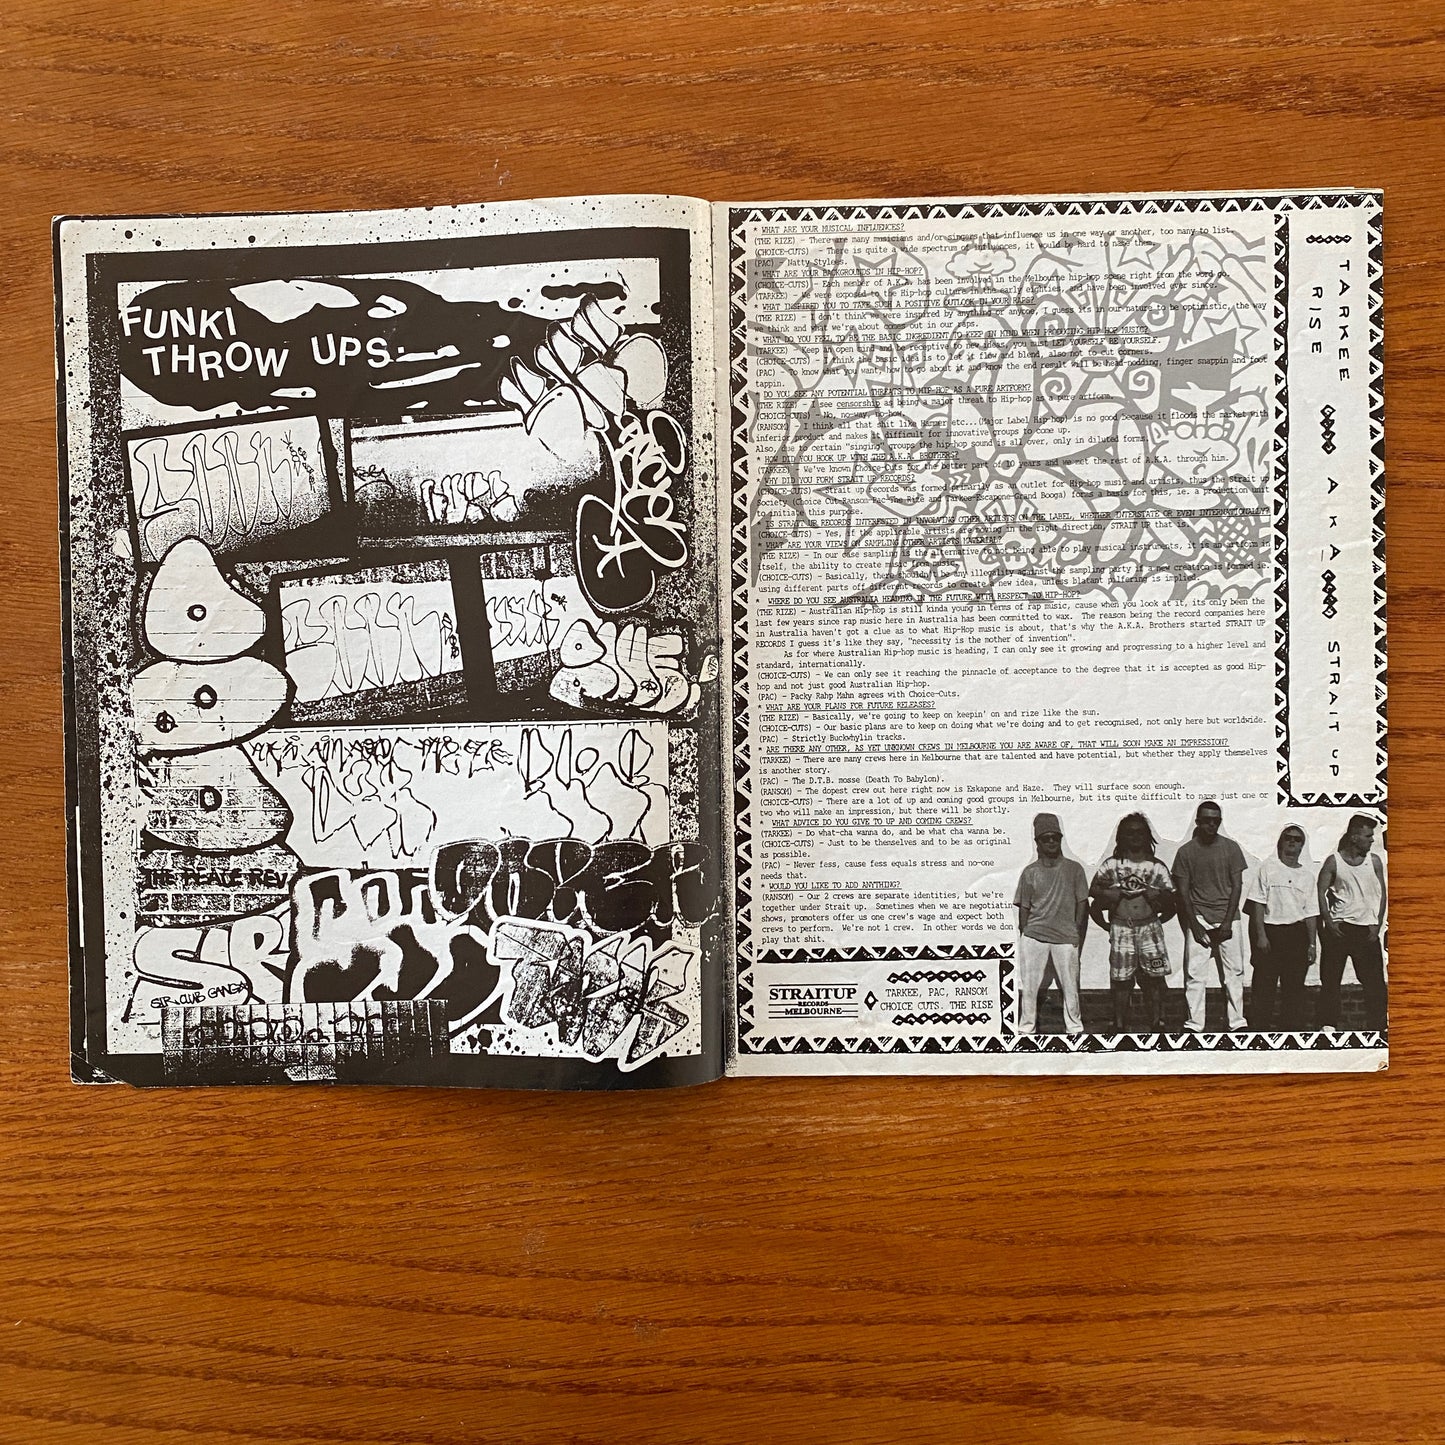 FUNKI
THROW UPS
THE PEACE REV
SIR
SIR CLUB GANG
* WHAT ARE YOUR MUSICAL INFLUENCES?
(THE RIZE) - There are many musicians and/or singers that influence us in one way or another, too many to list.
(CHOICE-CUTS) - There is quite a wide spectrum of influences, it would be hard to name them.
(PAC) - Natty Stylees.
* WHAT ARE YOUR BACKGROUNDS IN HIP-HOP?
(CHOICE-CUTS) - Each member of A.K.A. has been involved in the Melbourne hip-hop scene right from the word go.
(TARKEE) - We were exposed to the Hip-hop culture in the early eighties, and have been involved ever since.
* WHAT INSPIRED YOU TO TAKE SUCH A POSITIVE OUTLOOK IN YOUR RAPS?
(THE RIZE) - I don't think we were inspired by anything or anyone, I guess its in our nature to be optimistic, the way
we think and what we're about comes out in our raps.
* WHAT DO YOU FEEL TO BE THE BASIC INGREDIENT TO KEEP IN MIND WHEN PRODUCING HIP HOP MUSIC?
(TARKEE) - Keep an open mind and be receptive to new ideas, you must LET YOURSELF BE YOURSELF.
(CHOICE-CUTS) - I think the basis is to let it flow and blend, also not to cut corners.
(PAC) - To know what you want, how to go about it and know the end result will be head-nodding, finger snappin and foot
tappin.
* DO YOU SEE ANY POTENTIAL THREATS TO HIP-HOP AS A PURE ARTFORM?
(THE RIZE) - I see censorship as being a major threat to Hip-hop as a pure artform.
(CHOICE-CUTS) - No, no-way, no-how.
(RANSOM) - I think all that shit like Hammer etc...(Major Label Hip-hop) is no good because it floods the market with
inferior product and makes it difficult for innovative groups to come up.
Also, due to certain "singing" groups the hip-hop sound is all over, only in diluted forms.
* HOW DID YOU HOOK UP WITH THE A.K.A. BROTHERS?
(TARKEE) - We've known Choice-Cuts for the better part of 10 years and we met the rest of A.K.A. through him.
* WHY DID YOU FORM STRAIT UP RECORDS?
(CHOICE-CUTS) - Strait up records was formed primarily as an outlet for Hip-hop music and artists, thus the Strait up
Society (Choice Cut-Ransom-Pac-The Rize and Tarkee-Escapone-Grand Booga) forms a basis for this, ie. a production unit
to initiate this purpose.
* IS STRAIT UP RECORDS INTERESTED IN INVOLVING OTHER ARTISTS ON THE LABEL, WHETHER INTERSTATE OR EVEN INTERNATIONALLY?
(CHOICE-CUTS) - Yes, if applicable artists are moving in the right direction, STRAIT UP that is.
* WHAT ARE YOUR VIEWS ON SAMPLING OTHER ARTISTS MATERIAL?
(THE RIZE) - In our case sampling is the alternative to not being able to play musical instruments, it is an artform in
itself, the ability to create music from music.
(CHOICE-CUTS) - Basically, there shouldn't be any illegality against the sampling party if a new creation is formed ie.
using different parts off different records to create a new idea, unless blatant pilfering is implied.
* WHERE DO YOU SEE AUSTRALIA HEADING IN THE FUTURE WITH RESPECT TO HIP-HOP?
(THE RIZE) - Australian Hip-hop is still kinda young in terms of rap music, cause when you look at it, its only been the
last few years since rap music here in Australia has been committed to wax. The reason being the record companies here
in Australia haven't got a clue as to what Hip-Hop music is about, that's why the A.K.A. Brothers started STRAIT UP
RECORDS I guess it's like they say, "necessity is the mother of invention".
As for where Australian Hip-hop music is heading, I can only see it growing and progressing to a higher level and
standard, internationally.
(CHOICE-CUTS) - We can only see it reaching the pinnacle of acceptance to the degree that it is accepted as good Hip-
hop and not just good Australian Hip-hop.
(PAC) - Packy Rahp Mahn agrees with Choice-Cuts.
* WHAT ARE YOUR PLANS FOR FUTURE RELEASES?
(THE RIZE) - Basically, we're going to keep on keepin' on and rize like the sun.
(CHOICE-CUTS) - Our basic plans are to keep on doing what we're doing and to get recognised, not only here but worldwide.
(PAC) - Strictly Buckwhylin tracks.
* ARE THERE ANY OTHER, AS YET UNKNOWN CREWS IN MELBOURNE YOU ARE AWARE OF, THAT WILL SOON MAKE AN IMPRESSION?
(TARKEE) - There are many crews here in Melbourne that are talented and have potential, but whether they apply themselves
is another story.
(PAC) - The D.T.B. mosse (Death To Babylon).
(RANSOM) - The dopest crew out here right now is Eskapone and Haze. They will surface soon enough.
(CHOICE-CUTS) - There are a lot of up and coming good groups in Melbourne, but its quite difficult to name just one or
two who will make an impression, but there will be shortly.
* WHAT ADVICE DO YOU GIVE TO UP AND COMING CREWS?
(TARKEE) - Do what-cha wanna do, and be what cha wanna be.
(CHOICE-CUTS) - Just to be themselves and to be as original
as possible.
(PAC) - Never fess, cause fess equals stress and no-one
needs that.
* WOULD YOU LIKE TO ADD ANYTHING?
(RANSOM) - Our 2 crews are separate identities, but we're
together under Strait up. Sometimes when we are negotiatin
shows, promoters offer us one crew's wage and expect both
crews to perform. We're not 1 crew. In other words we don
play that shit.
STRAITUP
RECORDS
MELBOURNE
TARKEE, PAC, RANSOM
CHOICE CUTS. THE RISE
TARKEE
RISE
A K A
STRAIT UP